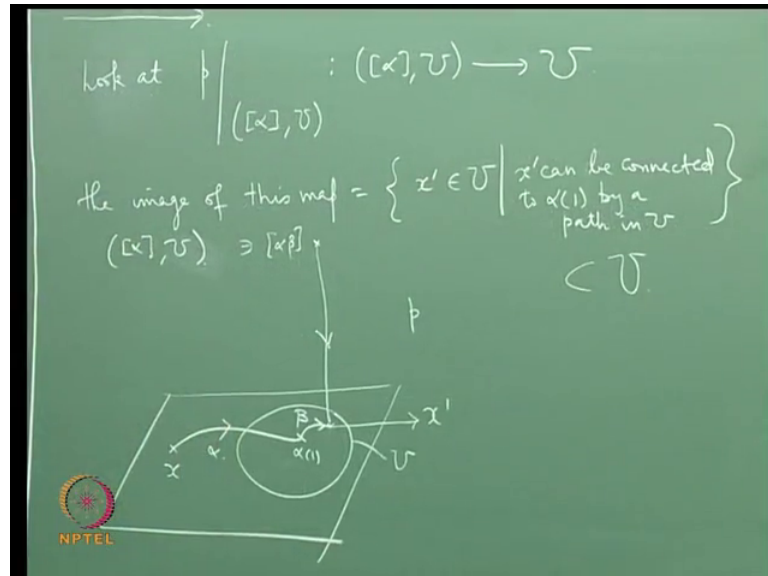 Look at p| : ([α], U) ⟶ U.
([α], U)
the image of this map = { x' ∈ U | x' can be connected
to α(1) by a
path in U }
([α], U) ∋ [αβ]
⊂ U.
p
β
x'
α
α(1)
x
U
NPTEL